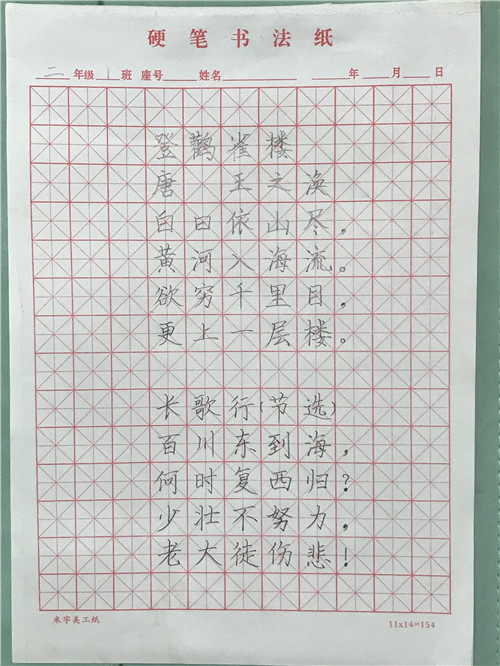 硬笔书法纸
二年级1班 座号 姓名 年 月 日
登鹳雀楼
唐 王之涣
白日依山尽，
黄河入海流。
欲穷千里目，
更上一层楼。
长歌行(节选)
百川东到海，
何时复西归？
少壮不努力，
老大徒伤悲！
米字美工纸
11x14=154